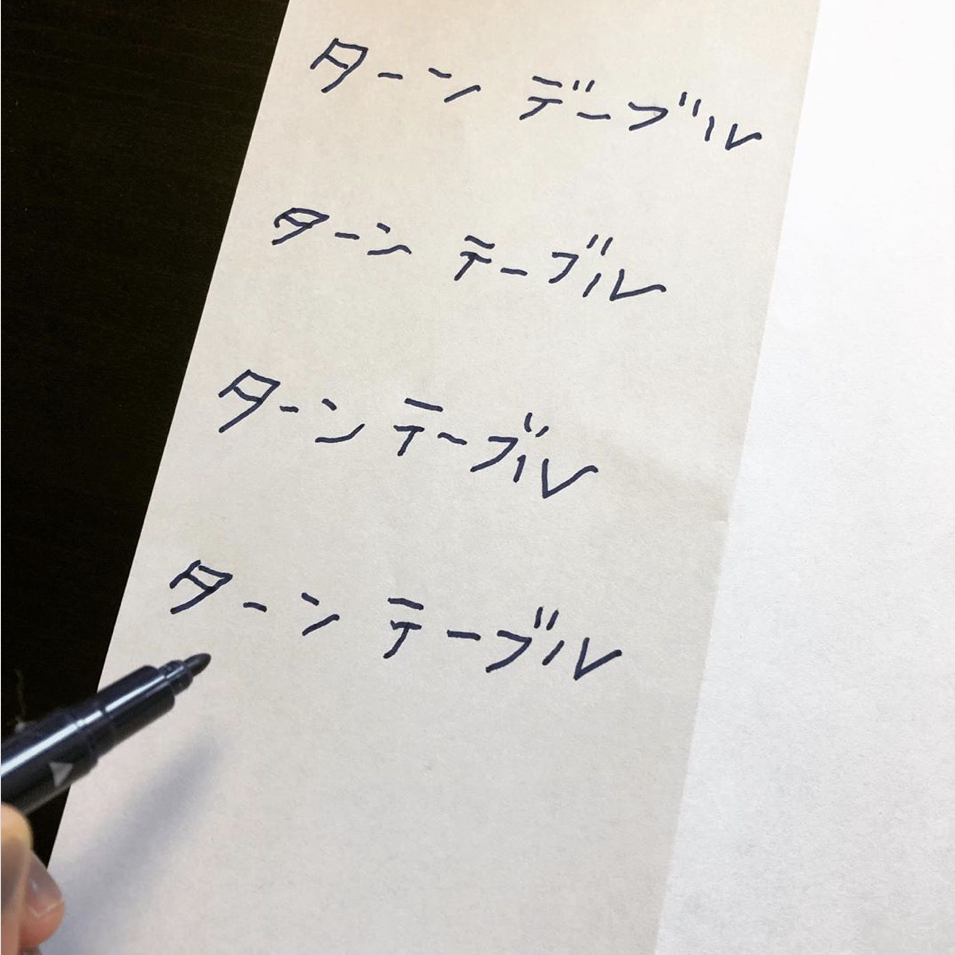 ターン デーブル
ターン テーブル
ターン テーブル
ターン テーブル